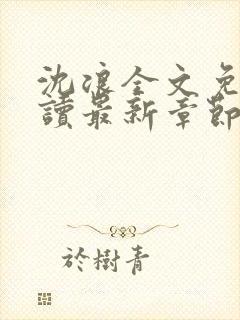 沈浪全文免
讀最新章節
於樹青